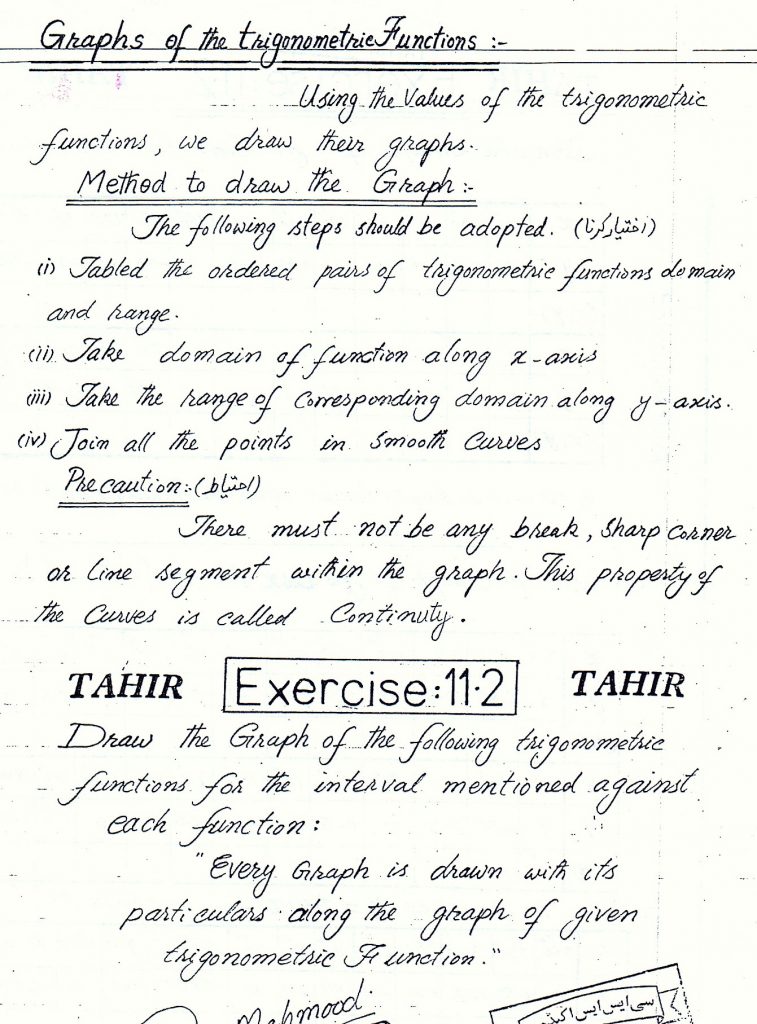 Graphs of the trigonometric Functions :-
Using the Values of the trigonometric
functions, we draw their graphs.
Method to draw the Graph :-
The following steps should be adopted. (اختیار کرنا)
(i) Tabled the ordered pairs of trigonometric functions domain
and range.
(ii) Take domain of function along x-axis
(iii) Take the range of corresponding domain along y-axis.
(iv) Join all the points in smooth Curves
Precaution:- (احتیاط)
There must not be any break, sharp corner
or line segment within the graph. This property of
the Curves is called Continuty.
TAHIR Exercise:11.2 TAHIR
Draw the Graph of the following trigonometric
functions for the interval mentioned against
each function:
"Every Graph is drawn with its
particulars along the graph of given
trigonometric Function."
Mehmood
سی ایس ایس